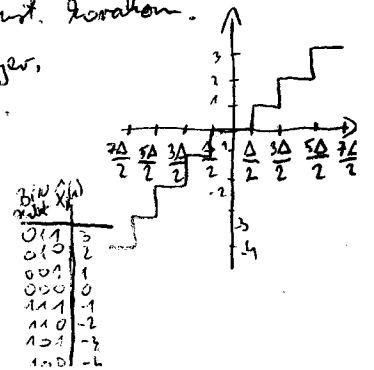 3
2
1
7Δ/2 5Δ/2 3Δ/2 Δ/2 Δ/2 3Δ/2 5Δ/2 7Δ/2
-2
-3
-4
BIN X̂(n)
011 3
010 2
001 1
000 0
111 -1
110 -2
101 -3
100 -4